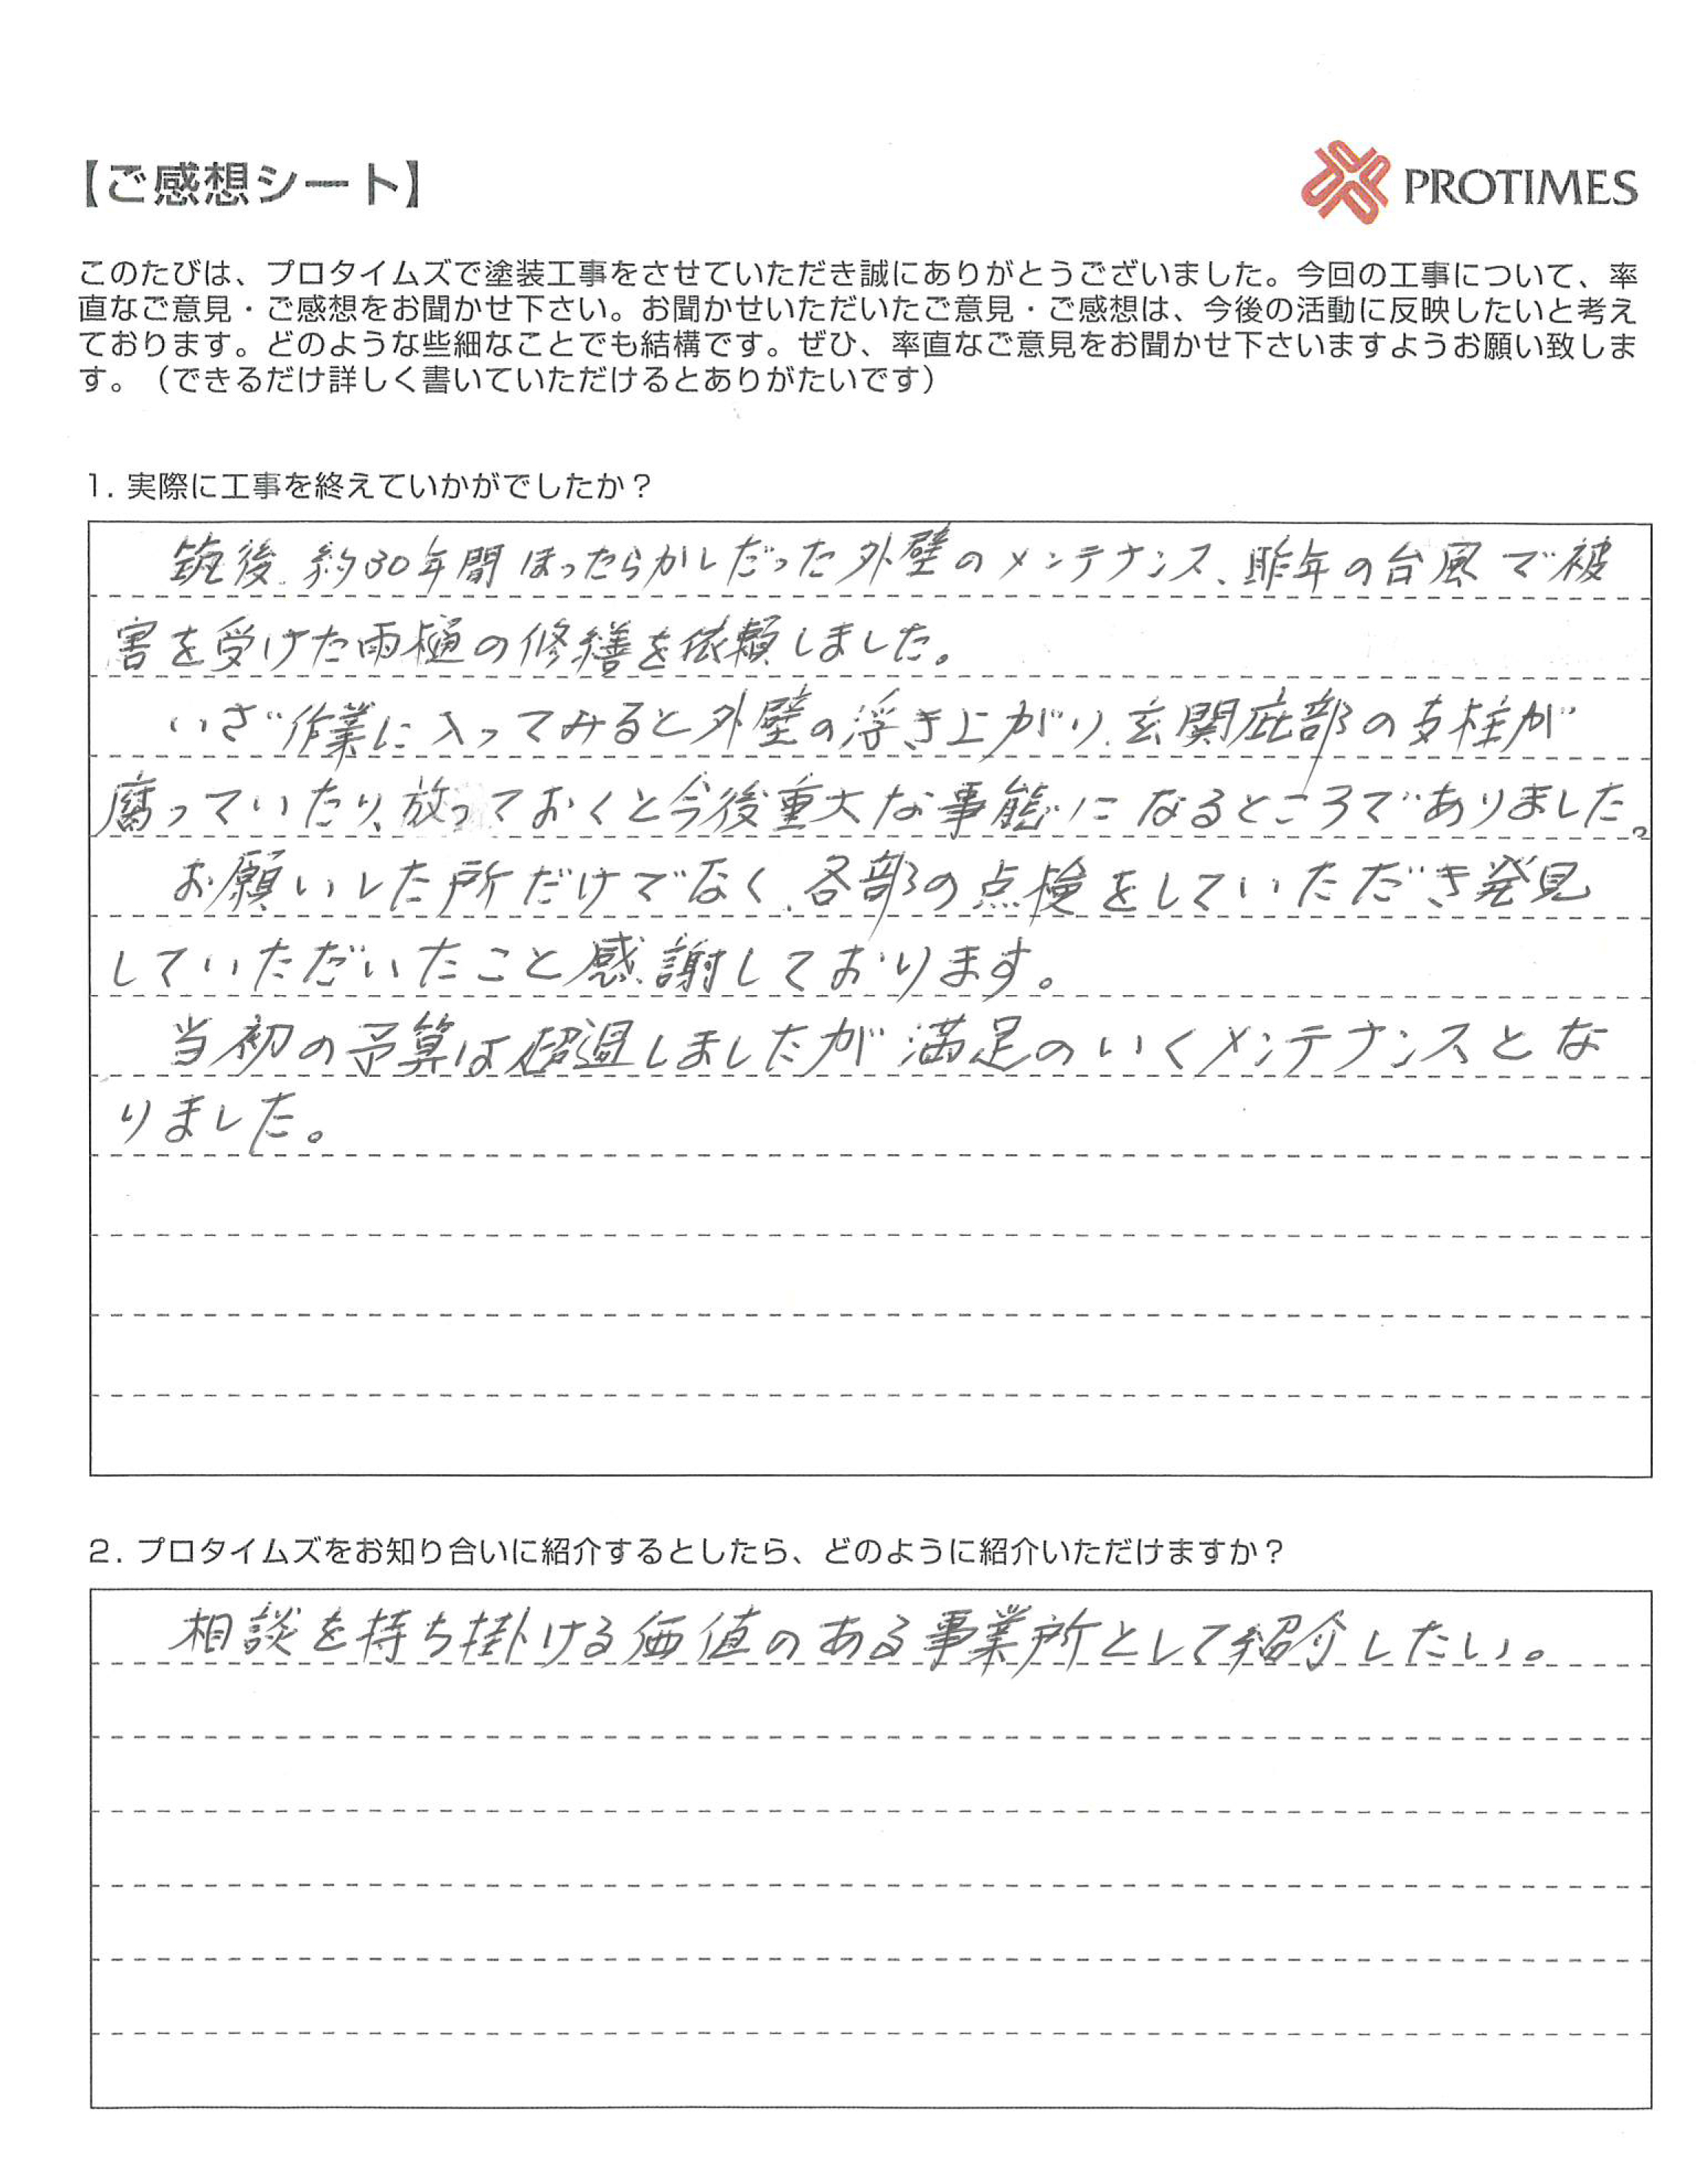 【ご感想シート】
PROTIMES
このたびは、プロタイムズで塗装工事をさせていただき誠にありがとうございました。今回の工事について、率
直なご意見・ご感想をお聞かせ下さい。お聞かせいただいたご意見・ご感想は、今後の活動に反映したいと考え
ております。どのような些細なことでも結構です。ぜひ、率直なご意見をお聞かせ下さいますようお願い致しま
す。（できるだけ詳しく書いていただけるとありがたいです）
1. 実際に工事を終えていかがでしたか？
築後、約30年間ほったらかしだった外壁のメンテナンス、昨年の台風で被
害を受けた雨樋の修繕を依頼しました。
いざ作業に入ってみると外壁の浮き上がり、玄関庇部の支柱が
腐っていたり、放っておくと今後重大な事態になるところでありました。
お願いした所だけでなく、各部の点検をしていただき発見
していただいたこと感謝しております。
当初の予算は超過しましたが満足のいくメンテナンスとな
りました。
2. プロタイムズをお知り合いに紹介するとしたら、どのように紹介いただけますか？
相談を持ち掛ける価値のある事業所として紹介したい。